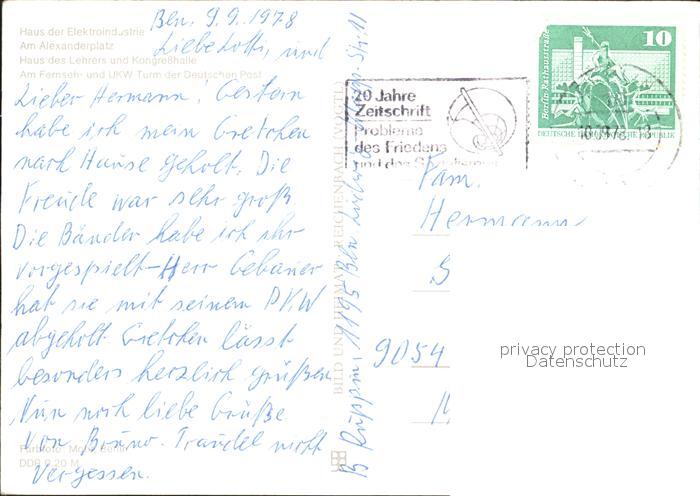 Bln. 9.9.1978
Haus der Elektroindustrie
Am Alexanderplatz
Haus des Lehrers und Kongreßhalle
Am Fernseh- und UKW Turm der Deutschen Post
Liebe Lotti, und
Lieber Hermann! Gestern
habe ich mein Gretchen
nach Hause geholt. Die
Freude war sehr groß.
Die Bänder habe ich ihr
vorgespielt - Herr Gebauer
hat sie mit seinem PKW
abgeholt. Gretchen lässt
besonders herzlich grüßen
Nun noch liebe Grüße
von Bruno. Traudel nicht
vergessen.
Farbfoto: Berlin
DDR 0,20 M
BILD UND HEIMAT REICHENBACH (VOGTL)
B Ruppin 1195 Bln Str. 11
20 Jahre
Zeitschrift
Probleme
des Friedens
und des
Berlin-Rathausstraße
10
DEUTSCHE DEMOKRATISCHE REPUBLIK
Fam.
Hermann
9054
privacy protection
Datenschutz